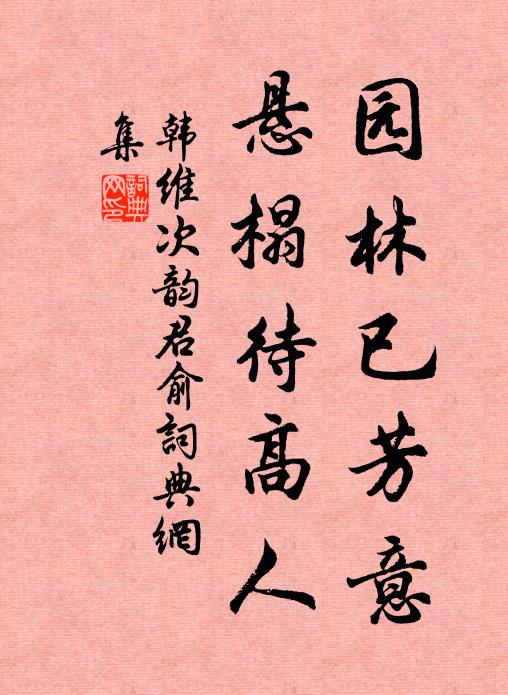 园林已芳意
悬榻待高人
韩维次韵君俞詞典網
集
詞典网印